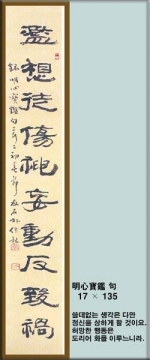 濫想徒傷神妄動反致禍
錄明心寶鑑句
明心寶鑑 句
17 × 135
쓸데없는 생각은 다만
정신을 상하게 할 것이요.
허망한 행동은
도리어 화를 이루느니라.